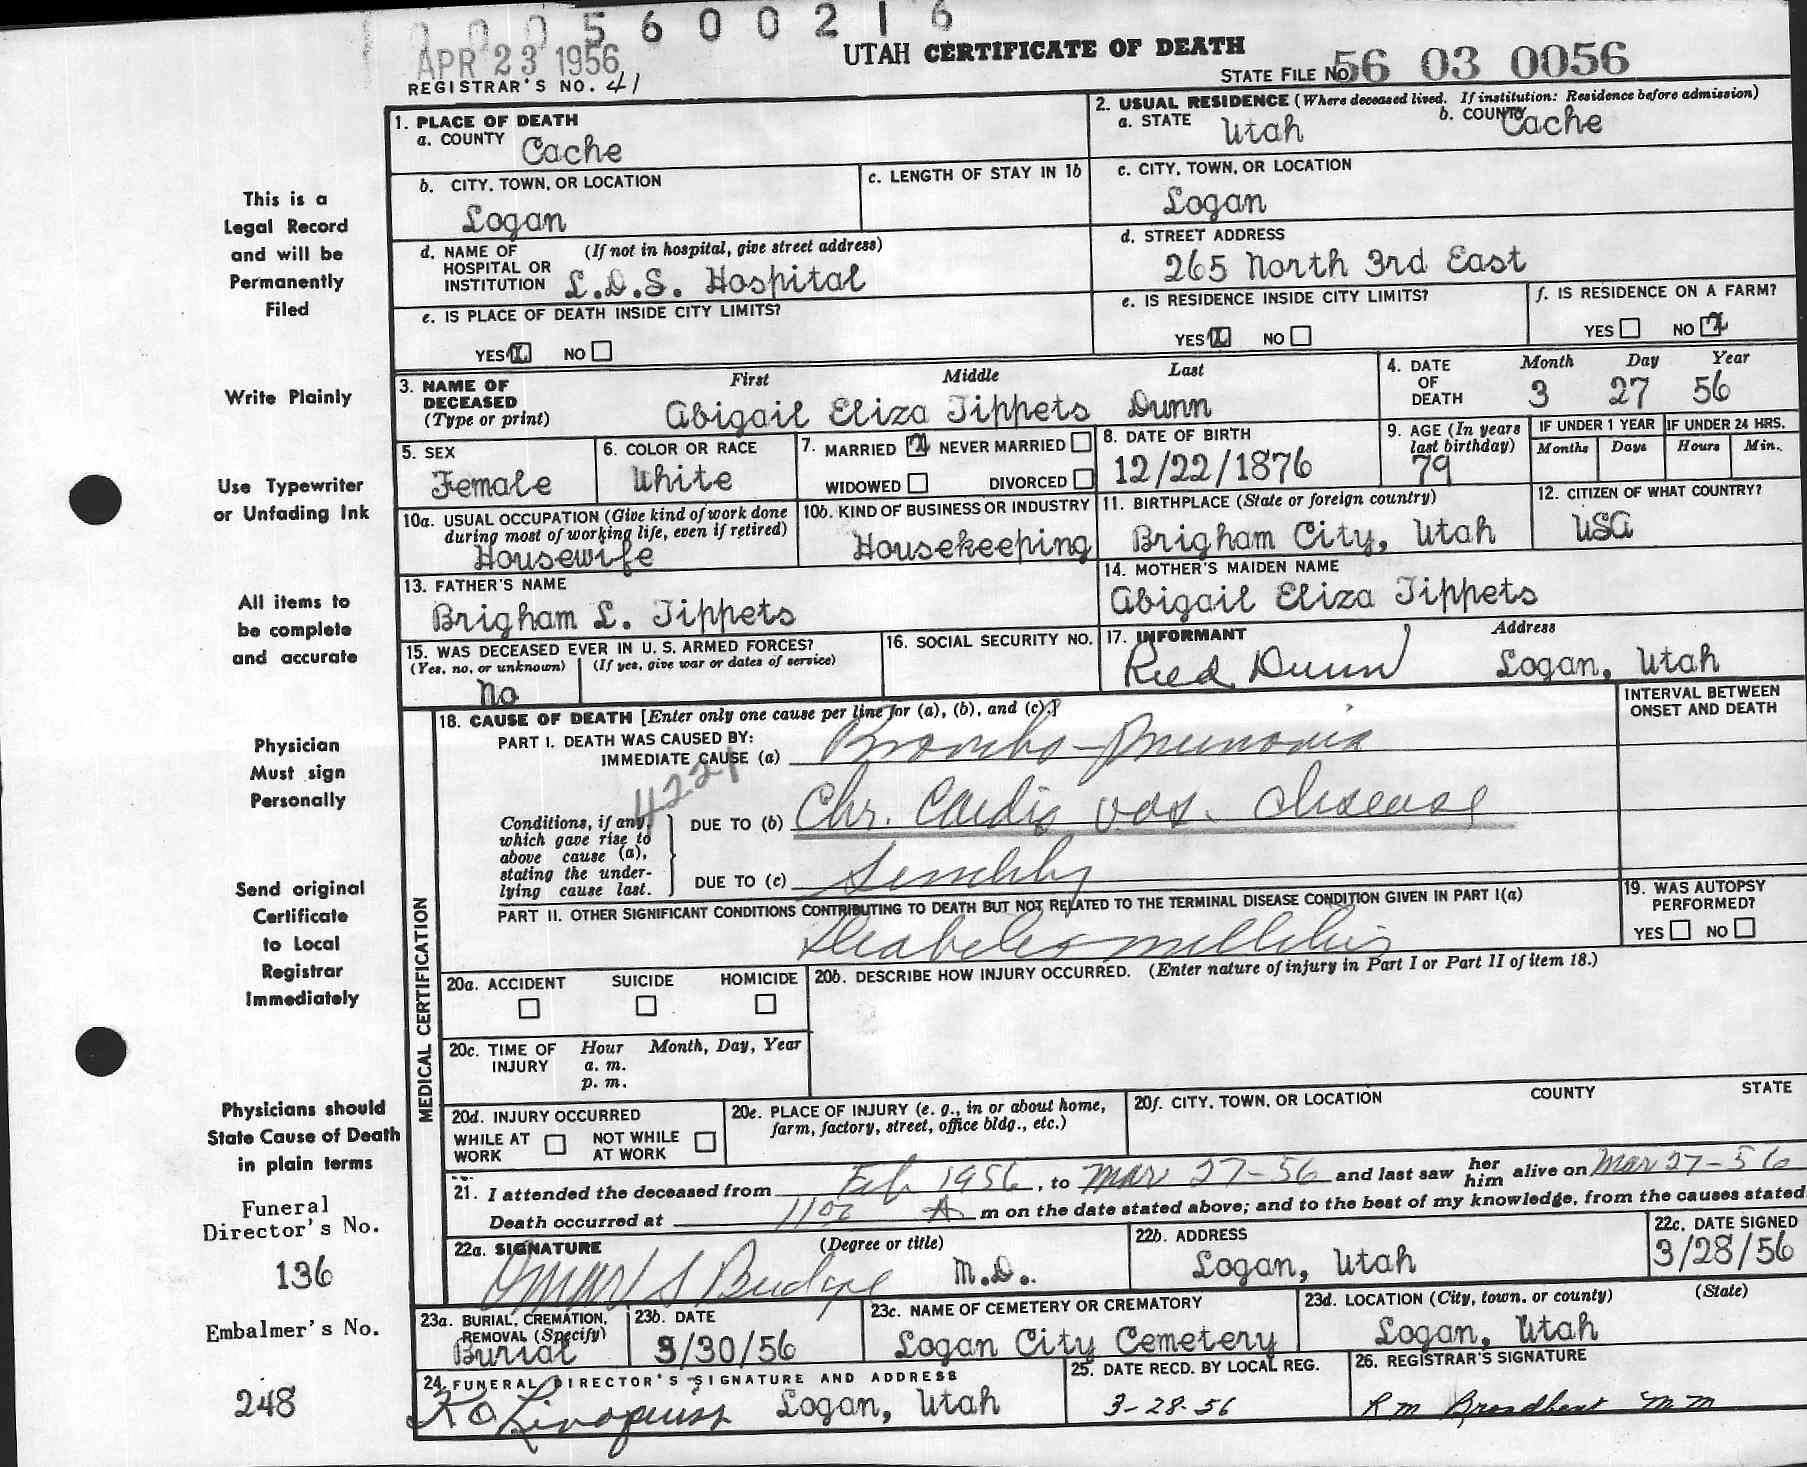 1005600216
APR 23 1956
UTAH CERTIFICATE OF DEATH
REGISTRAR'S NO. 41
STATE FILE NO. 56 03 0056
1. PLACE OF DEATH
a. COUNTY Cache
2. USUAL RESIDENCE (Where deceased lived. If institution: Residence before admission)
a. STATE Utah b. COUNTY Cache
b. CITY, TOWN, OR LOCATION
Logan
c. LENGTH OF STAY IN 1b
c. CITY, TOWN, OR LOCATION
Logan
d. NAME OF HOSPITAL OR INSTITUTION (If not in hospital, give street address)
L.D.S. Hospital
d. STREET ADDRESS
265 North 3rd East
e. IS PLACE OF DEATH INSIDE CITY LIMITS?
YES X NO
e. IS RESIDENCE INSIDE CITY LIMITS?
YES X NO
f. IS RESIDENCE ON A FARM?
YES NO X
3. NAME OF DECEASED (Type or print)
First Middle Last
Abigail Eliza Tippets Dunn
4. DATE OF DEATH
Month Day Year
3 27 56
5. SEX
Female
6. COLOR OR RACE
White
7. MARRIED X NEVER MARRIED
WIDOWED DIVORCED
8. DATE OF BIRTH
12/22/1876
9. AGE (In years last birthday)
79
IF UNDER 1 YEAR
Months Days
IF UNDER 24 HRS.
Hours Min.
10a. USUAL OCCUPATION (Give kind of work done during most of working life, even if retired)
Housewife
10b. KIND OF BUSINESS OR INDUSTRY
Housekeeping
11. BIRTHPLACE (State or foreign country)
Brigham City, Utah
12. CITIZEN OF WHAT COUNTRY?
USA
13. FATHER'S NAME
Brigham L. Tippets
14. MOTHER'S MAIDEN NAME
Abigail Eliza Tippets
15. WAS DECEASED EVER IN U. S. ARMED FORCES?
(Yes, no, or unknown) (If yes, give war or dates of service)
No
16. SOCIAL SECURITY NO.
17. INFORMANT Address
Reed Dunn Logan, Utah
18. CAUSE OF DEATH [Enter only one cause per line for (a), (b), and (c).]
INTERVAL BETWEEN ONSET AND DEATH
PART I. DEATH WAS CAUSED BY:
IMMEDIATE CAUSE (a) Broncho-Pneumonia
4221
Conditions, if any, which gave rise to above cause (a), stating the underlying cause last.
DUE TO (b) Chr. Cardio vas. disease
DUE TO (c) Senility
PART II. OTHER SIGNIFICANT CONDITIONS CONTRIBUTING TO DEATH BUT NOT RELATED TO THE TERMINAL DISEASE CONDITION GIVEN IN PART I(a)
Diabetes mellitis
19. WAS AUTOPSY PERFORMED?
YES NO
MEDICAL CERTIFICATION
20a. ACCIDENT SUICIDE HOMICIDE
20b. DESCRIBE HOW INJURY OCCURRED. (Enter nature of injury in Part I or Part II of item 18.)
20c. TIME OF INJURY
Hour Month, Day, Year
a. m.
p. m.
20d. INJURY OCCURRED
WHILE AT WORK NOT WHILE AT WORK
20e. PLACE OF INJURY (e. g., in or about home, farm, factory, street, office bldg., etc.)
20f. CITY, TOWN, OR LOCATION COUNTY STATE
21. I attended the deceased from Feb 1956, to Mar 27-56 and last saw her him alive on Mar 27-56
Death occurred at 1100 A m on the date stated above; and to the best of my knowledge, from the causes stated
22a. SIGNATURE (Degree or title)
Omar S Budge M.D.
22b. ADDRESS
Logan, Utah
22c. DATE SIGNED
3/28/56
23a. BURIAL, CREMATION, REMOVAL (Specify)
Burial
23b. DATE
3/30/56
23c. NAME OF CEMETERY OR CREMATORY
Logan City Cemetery
23d. LOCATION (City, town, or county) (State)
Logan, Utah
24. FUNERAL DIRECTOR'S SIGNATURE AND ADDRESS
K O Lindquist Logan, Utah
25. DATE RECD. BY LOCAL REG.
3-28-56
26. REGISTRAR'S SIGNATURE
R m Broadbent m m
This is a
Legal Record
and will be
Permanently
Filed
Write Plainly
Use Typewriter
or Unfading Ink
All items to
be complete
and accurate
Physician
Must sign
Personally
Send original
Certificate
to Local
Registrar
Immediately
Physicians should
State Cause of Death
in plain terms
Funeral
Director's No.
136
Embalmer's No.
248